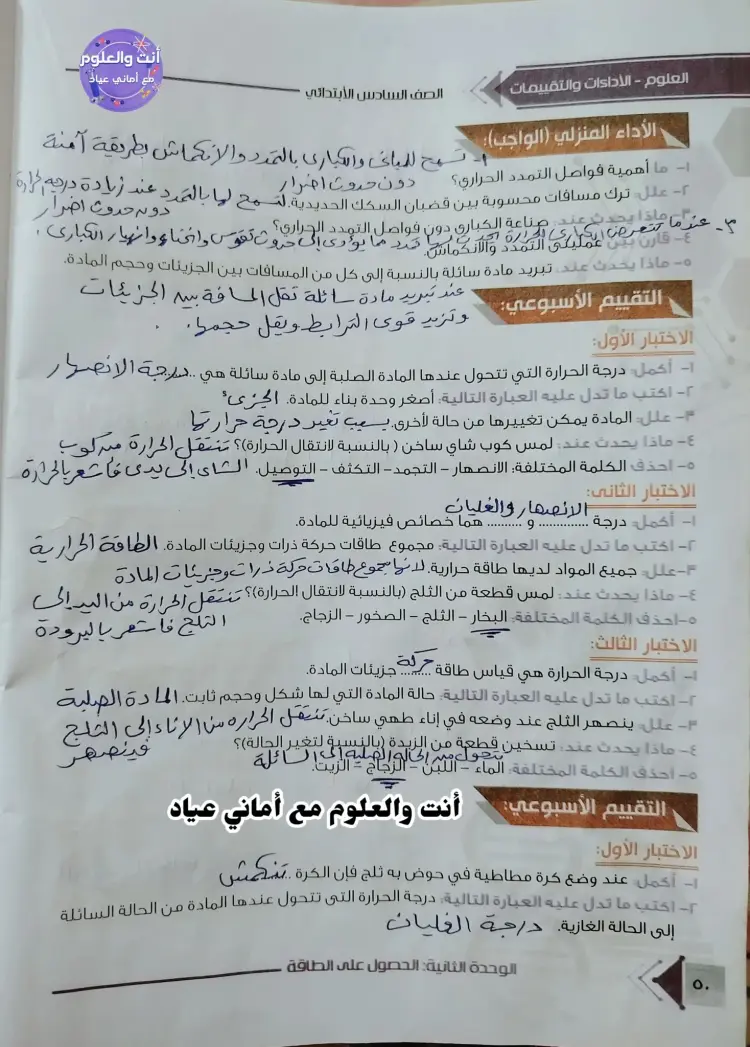 أنت والعلوم
مع أماني عياد
العلوم - الأداءات والتقييمات
الصف السادس الابتدائي
الأداء المنزلي (الواجب):
١- تسمح للمبانى والكبارى بالتمدد والانكماش بطريقة آمنة
١- ما أهمية فواصل التمدد الحراري؟ دون حدوث اضرار
٢- علل: ترك مسافات محسوبة بين قضبان السكك الحديدية. لتسمح لها بالتمدد عند زيادة درجه الحرارة
دون حدوث اضرار
٣- ماذا يحدث عند: صناعة الكباري دون فواصل التمدد الحراري؟
٣- عندما تتعرض الكبارى للحرارة يحدث لها تمدد مما يؤدى إلى حدوث تقوس وانحناء وانهيار الكبارى.
٤- قارن بين عمليتى التمدد والانكماش.
٥- ماذا يحدث عند: تبريد مادة سائلة بالنسبة إلى كل من المسافات بين الجزيئات وحجم المادة.
عند تبريد مادة سائلة تقل المسافة بين الجزيئات
وتزيد قوى الترابط ويقل حجمها.
التقييم الأسبوعي:
الاختبار الأول:
١- أكمل: درجة الحرارة التي تتحول عندها المادة الصلبة إلى مادة سائلة هي ..درجة الانصهار
٢- اكتب ما تدل عليه العبارة التالية: أصغر وحدة بناء للمادة. الجزىء
٣- علل: المادة يمكن تغييرها من حالة لأخرى. بسبب تغير درجة حرارتها
٤- ماذا يحدث عند: لمس كوب شاي ساخن ( بالنسبة لانتقال الحرارة)؟ تنتقل الحرارة من كوب
٥- احذف الكلمة المختلفة: الانصهار - التجمد - التكثف - التوصيل. الشاى إلى يدى فأشعر بالحرارة
الاختبار الثانى:
الانصهار والغليان
١- أكمل: درجة .............. و .......... هما خصائص فيزيائية للمادة.
٢- اكتب ما تدل عليه العبارة التالية: مجموع طاقات حركة ذرات وجزيئات المادة. الطاقة الحرارية
٣-علل: جميع المواد لديها طاقة حرارية. لانها مجموع طاقات حركة ذرات وجزيئات المادة
٤- ماذا يحدث عند: لمس قطعة من الثلج (بالنسبة لانتقال الحرارة)؟ تنتقل الحرارة من اليد إلى
٥-احذف الكلمة المختلفة: البخار - الثلج - الصخور - الزجاج. الثلج فأشعر بالبرودة
الاختبار الثالث:
١- أكمل: درجة الحرارة هي قياس طاقة حركة جزيئات المادة.
٢- اكتب ما تدل عليه العبارة التالية: حالة المادة التي لها شكل وحجم ثابت. المادة الصلبة
٣- علل: ينصهر الثلج عند وضعه في إناء طهي ساخن. تنتقل الحراره من الاناء إلى الثلج
فينصهر
٤- ماذا يحدث عند: تسخين قطعة من الزبدة (بالنسبة لتغير الحالة)؟
تتحول من الحالة الصلبه إلى السائلة
٥- احذف الكلمة المختلفة: الماء - اللبن - الزجاج - الزيت.
التقييم الأسبوعي:
أنت والعلوم مع أماني عياد
الاختبار الأول:
١- أكمل: عند وضع كرة مطاطية في حوض به ثلج فإن الكرة ..تنكمش
٢- اكتب ما تدل عليه العبارة التالية: درجة الحرارة التى تتحول عندها المادة من الحالة السائلة
إلى الحالة الغازية. درجة الغليان
الوحدة الثانية: الحصول على الطاقة
٥٠